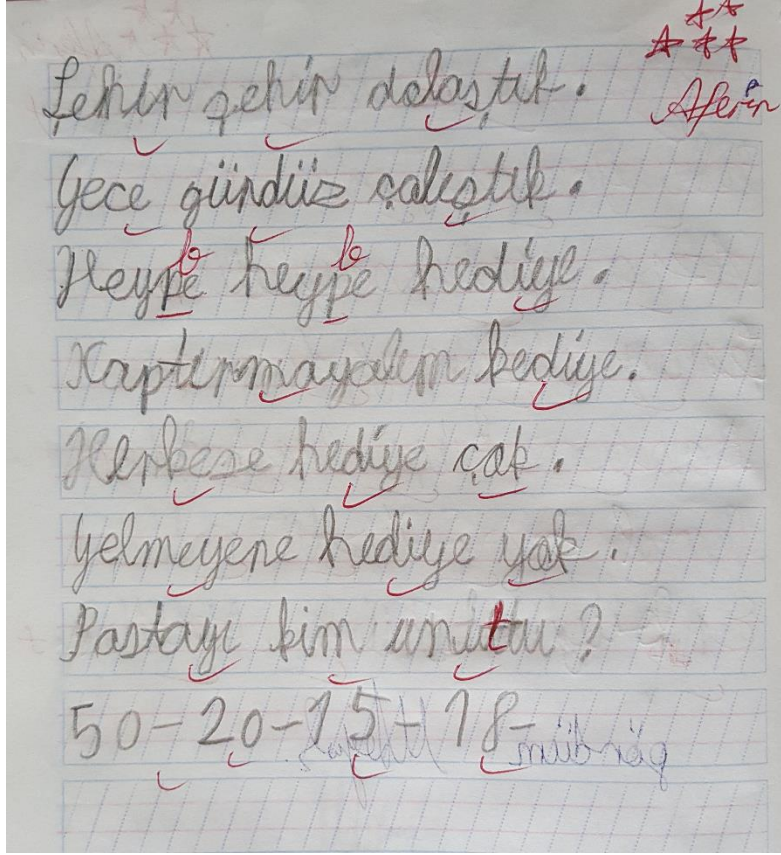 Aferin
Şehir şehir dolaştık.
Gece gündüz çalıştık.
Heype heype hediye.
Kaptırmayalım kediye.
Herkese hediye çok.
Gelmeyene hediye yok.
Pastayı kim unuttu?
50-20-15-18-